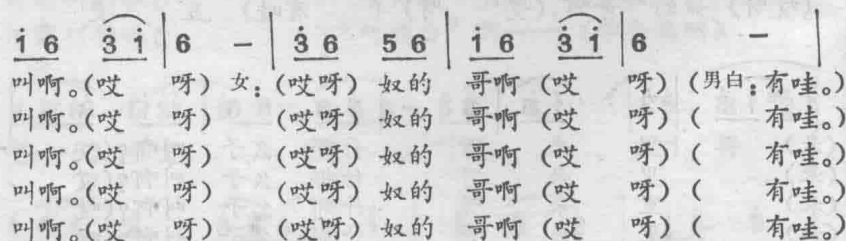 i̇ 6 3̇ i̇ | 6 － | 3̇ 6 5 6 | i̇ 6 3̇ i̇ | 6 － |
叫啊。(哎 呀) 女：(哎呀) 奴的 哥啊 (哎 呀) (男白：有哇。)
叫啊。(哎 呀) (哎呀) 奴的 哥啊 (哎 呀) ( 有哇。)
叫啊。(哎 呀) (哎呀) 奴的 哥啊 (哎 呀) ( 有哇。)
叫啊。(哎 呀) (哎呀) 奴的 哥啊 (哎 呀) ( 有哇。)
叫啊。(哎 呀) (哎呀) 奴的 哥啊 (哎 呀) ( 有哇。)